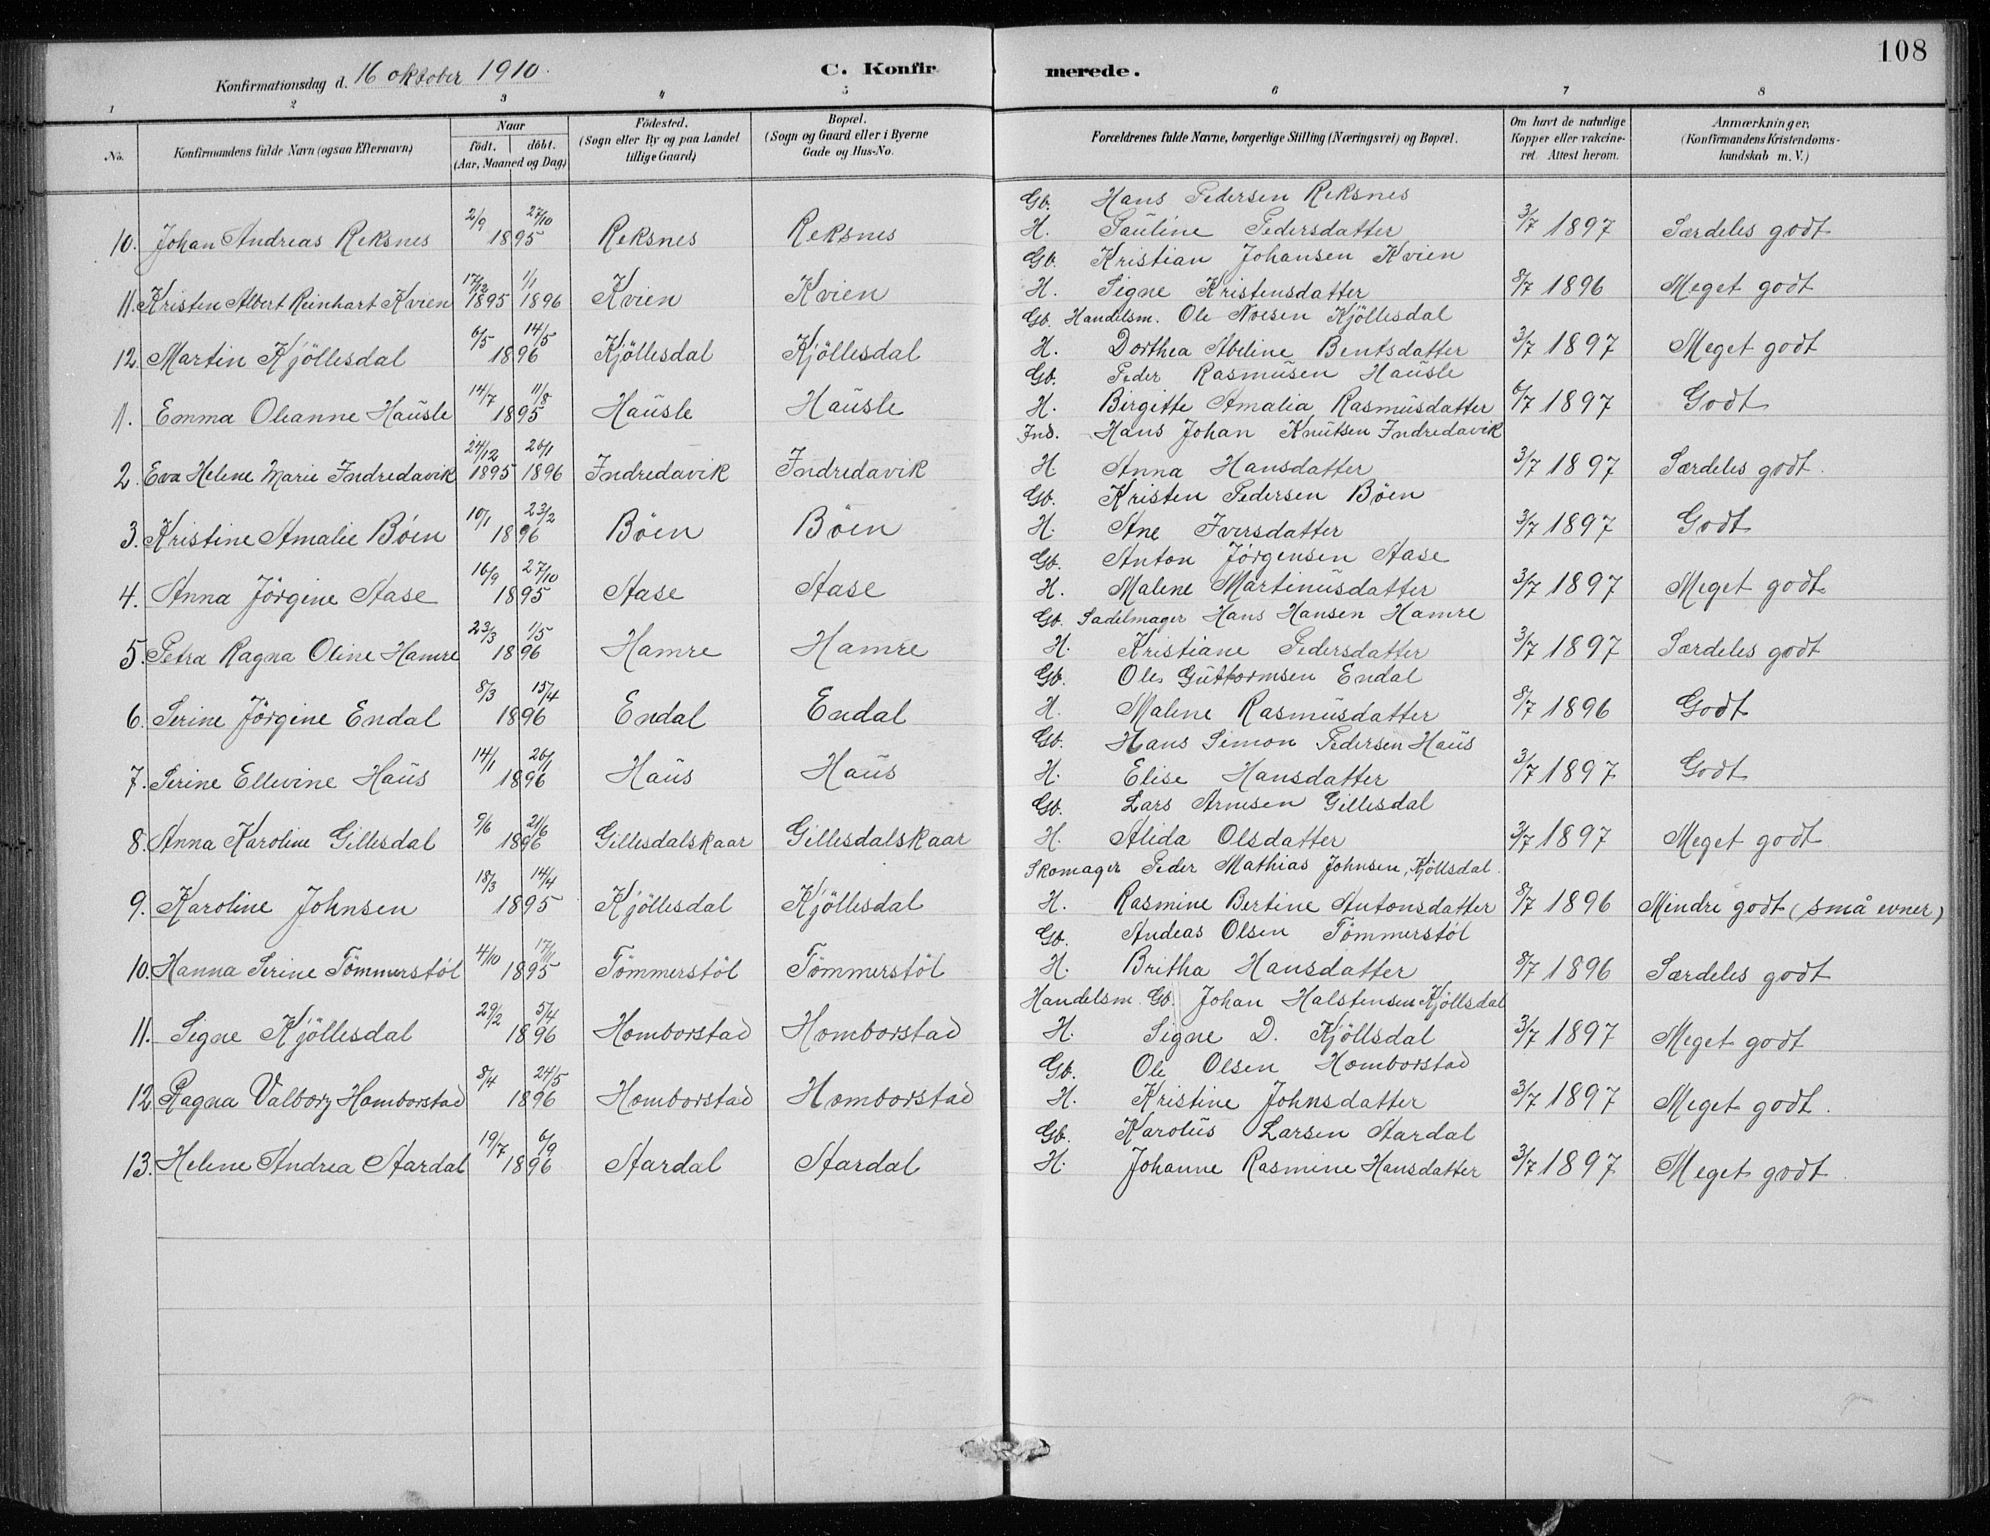 108
Konfirmationsdag d. 16 oktober 1910. C. Konfir merede.
1 2 3 4 5 6 7 8
No. Konfirmandens fulde Navn (ogsaa Efternavn) Naar födt. döbt. (Aar, Maaned og Dag) Födested. (Sogn eller By og paa Landet tillige Gaard) Bopæl. (Sogn og Gaard eller i Byerne Gade og Hus-No. Forældrenes fulde Navne, borgerlige Stilling (Næringsvei) og Bopæl. Om havt de naturlige Kopper eller vakcineret. Attest herom. Anmærkninger, (Konfirmandens Kristendomskundskab m. V.)
Gb. Hans Pedersen Reksnes
10. Johan Andreas Reksnes 2/9 27/10 1895 Reksnes Reksnes H. Pauline Pedersdatter 3/7 1897 Særdeles godt
Gb. Kristian Johansen Kvien
11. Kristen Albert Reinhart Kvien 17/12 1895 1/1 1896 Kvien Kvien H. Signe Kristensdatter 8/7 1896 Meget godt
Gb. Handelsm. Ole Noesen Kjöllesdal
12. Martin Kjöllesdal 6/5 14/5 1896 Kjöllesdal Kjöllesdal H. Dorthea Abeline Bentsdatter 3/7 1897 Meget godt
Gb. Peder Rasmusen Hausle
1. Emma Oleanne Hausle 14/7 11/8 1895 Hausle Hausle H. Birgitte Amalia Rasmusdatter 6/7 1897 Godt
Ind. Hans Johan Knutsen Indredavik
2. Eva Helene Marie Indredavik 24/12 1895 26/1 1896 Indredavik Indredavik H Anna Hansdatter 3/7 1897 Særdeles godt.
Gb. Kristen Pedersen Böen
3. Kristine Amalie Böen 10/1 23/2 1896 Böen Böen H. Ane Iversdatter 3/7 1897 Godt
Gb. Anton Jörgensen Aase
4. Anna Jörgine Aase 16/9 27/10 1895 Aase Aase H. Malene Martinusdatter 3/7 1897 Meget godt
Gb. Sadelmager Hans Hansen Hamre
5. Petra Ragna Oline Hamre 23/3 1/5 1896 Hamre Hamre H. Kristiane Pedersdatter 3/7 1897 Særdeles godt
Gb. Ole Guttormsen Endal
6. Serine Jörgine Endal 8/3 15/4 1896 Endal Endal H. Malene Rasmusdatter 8/7 1896 Godt
Gb. Hans Simon Pedersen Haus
7. Serine Ellevine Haus 14/1 26/1 1896 Haus Haus H. Elise Hansdatter 3/7 1897 Godt
Gb. Lars Arnesen Gillesdal
8. Anna Karoline Gillesdal 9/6 21/6 1896 Gillesdalskaar Gillesdalskaar H. Alida Olsdatter 3/7 1897 Meget godt
Skomager Peder Mathias Johnsen, Kjöllsdal.
9. Karoline Johnsen 18/3 14/4 1895 Kjöllesdal Kjöllesdal H. Rasmine Bertine Antonsdatter 8/7 1896 Mindre godt (små evner)
Gb. Andeas Olsen Tömmerstöl
10. Hanna Serine Tömmerstöl 4/10 17/11 1895 Tömmerstöl Tömmerstöl H. Britha Hansdatter 8/7 1896 Særdeles godt
Handelsm. Gb. Johan Halstensen Kjöllsdal
11. Signe Kjöllesdal 29/2 5/4 1896 Homborstad Homborstad H. Signe D. Kjöllsdal 3/7 1897 Meget godt
Gb. Ole Olsen Homborstad
12. Ragna Valborg Homborstad 8/4 24/5 1896 Homborstad Homborstad H. Kristine Johnsdatter 3/7 1897 Meget godt.
Gb. Karolus Larsen Aardal
13. Helene Andrea Aardal 19/7 6/9 1896 Aardal Aardal H. Johanne Rasmine Hansdatter 3/7 1897 Meget godt